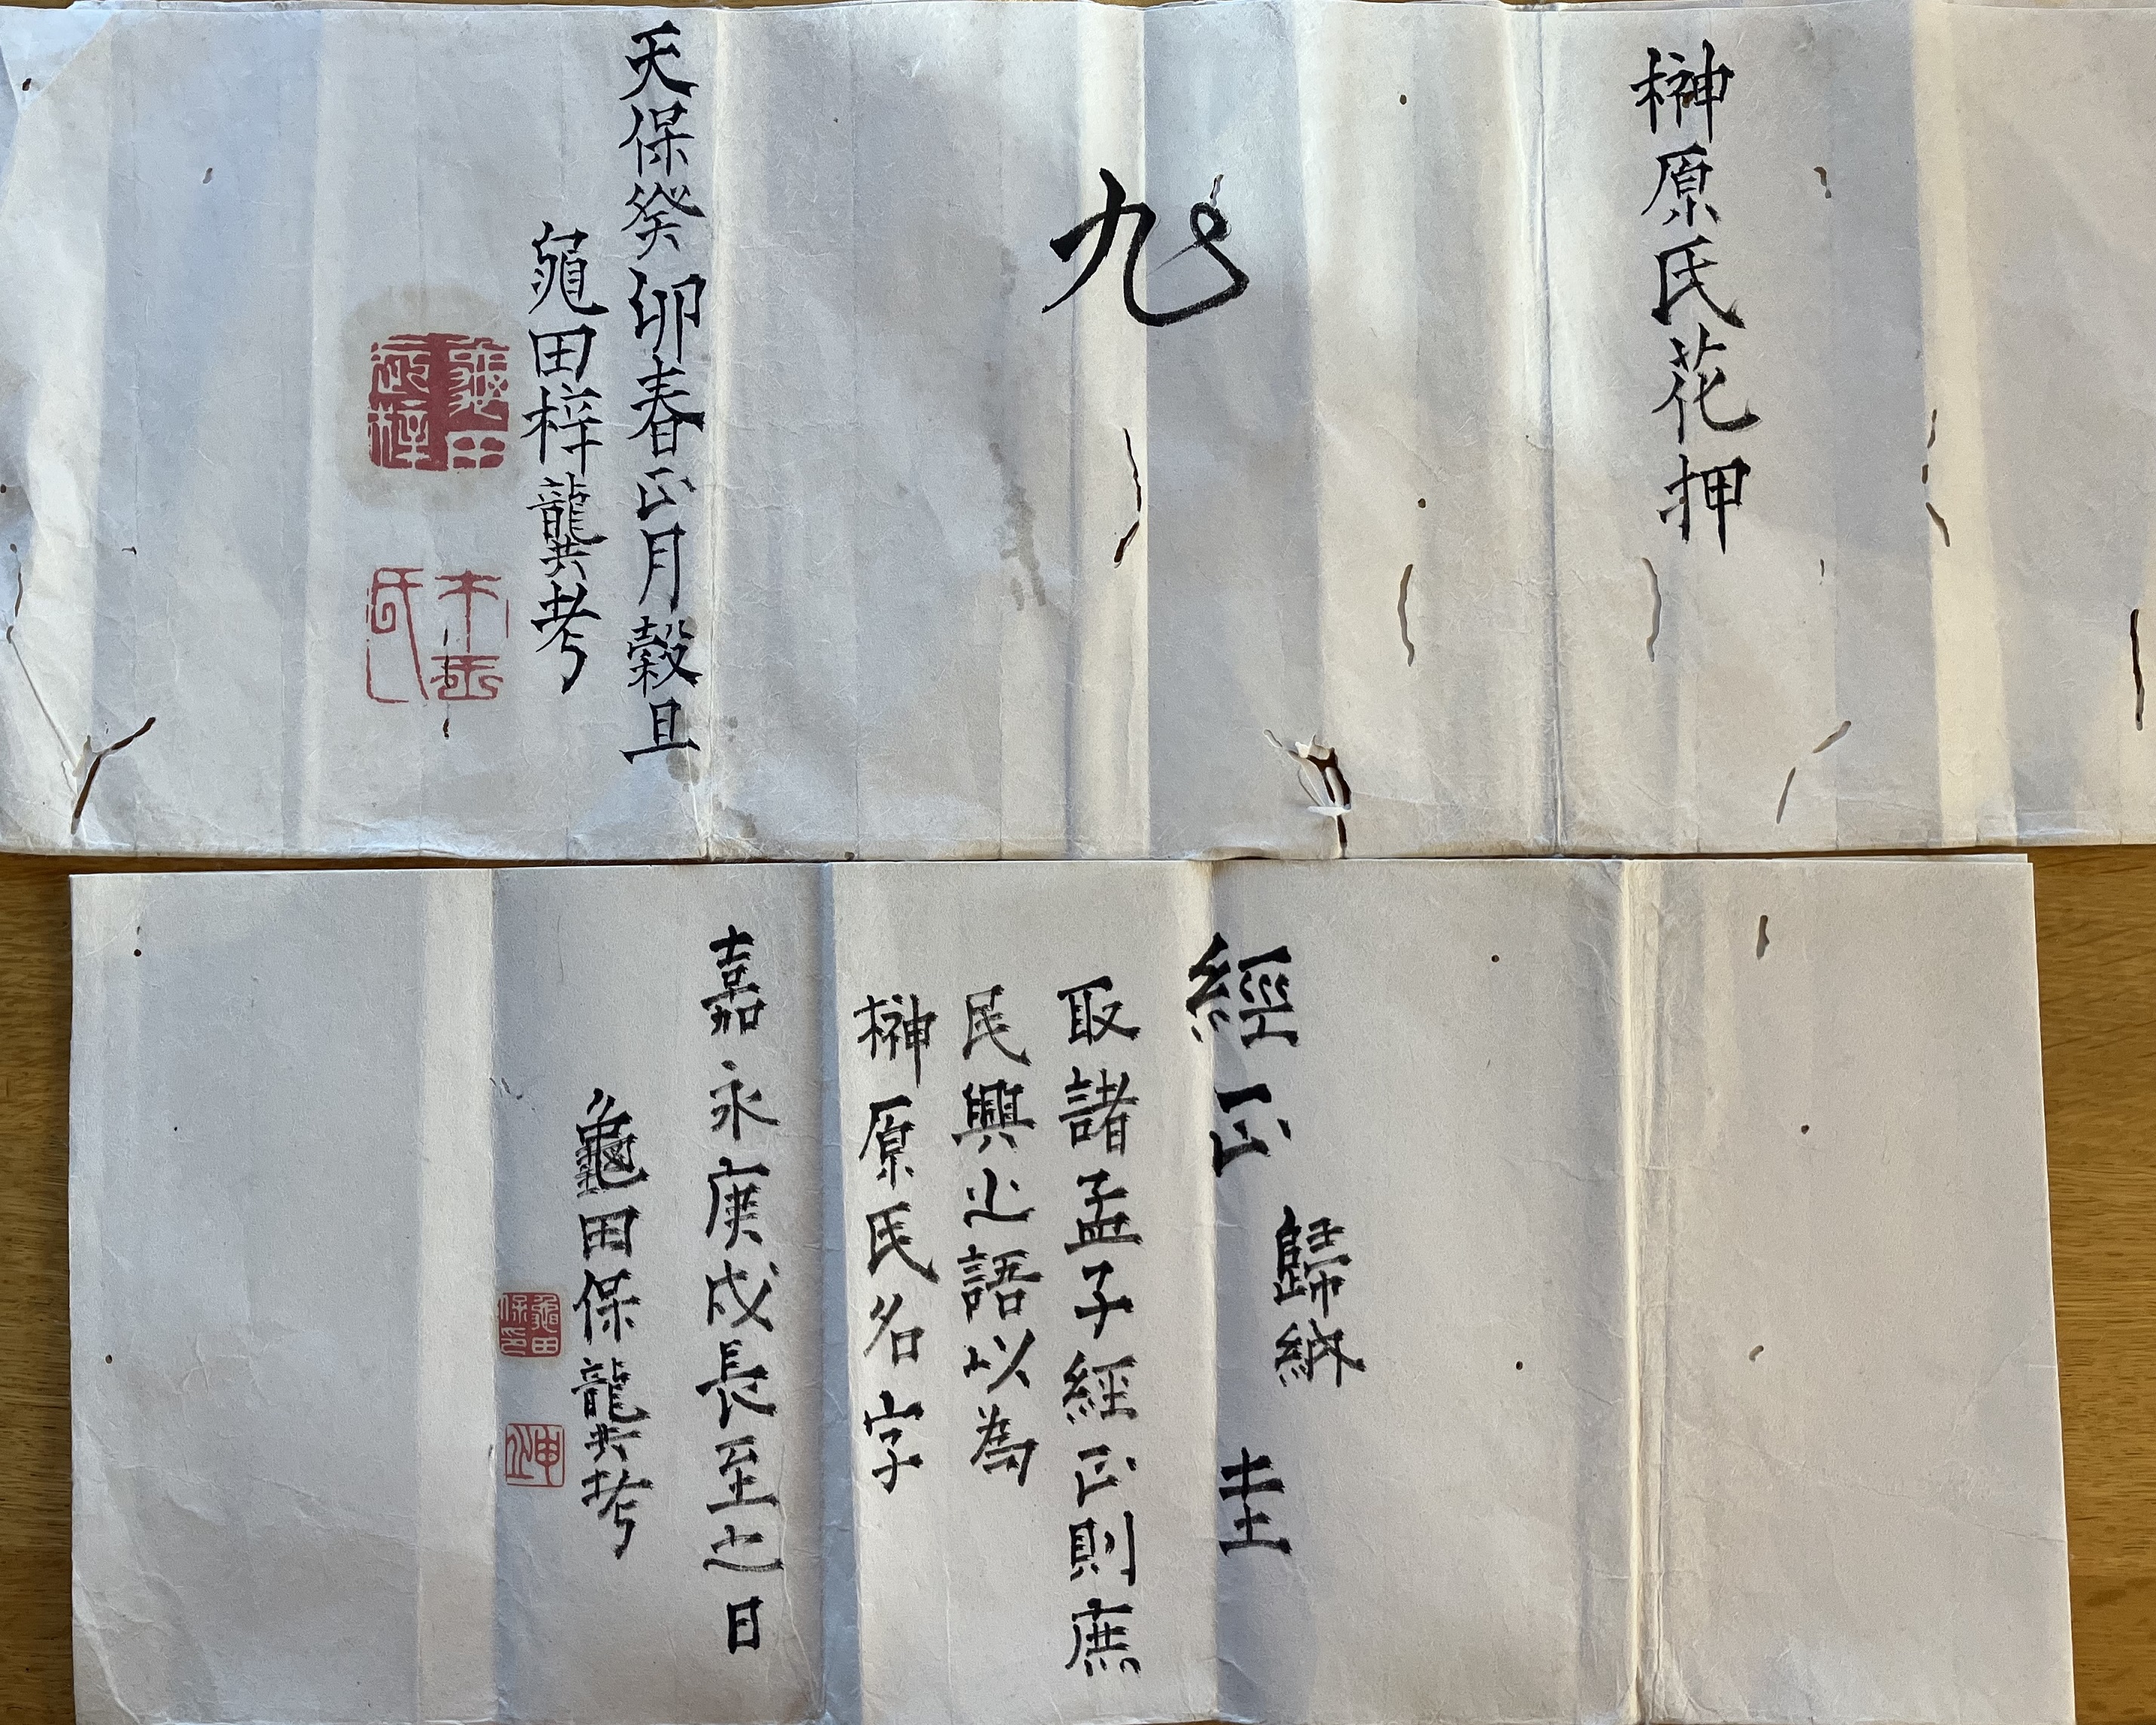 榊原氏花押
天保癸卯春正月穀旦
龜田梓龔考
經正 歸納 圭
取諸孟子經正則庶
民興之語以為
榊原氏名字
嘉永庚戌長至之日
龜田保龔考
龜田保印